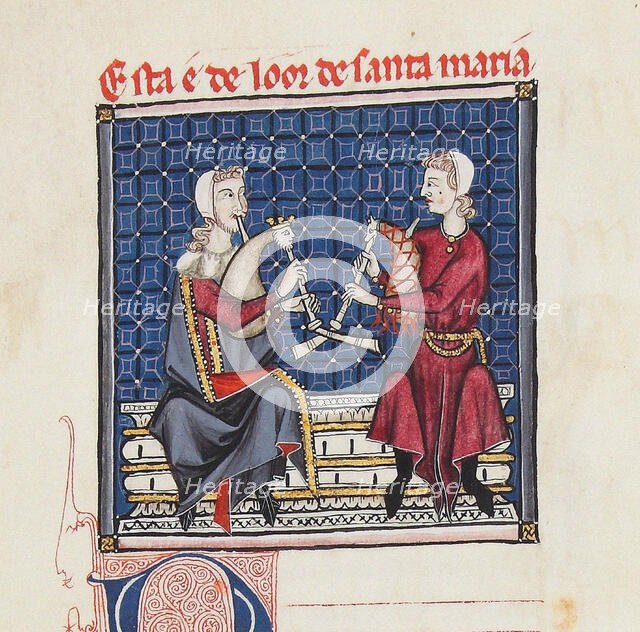 Esta é de loor de santa maria
Heritage Heritage
Heritage Heritage Heritage
Heritage Heritage